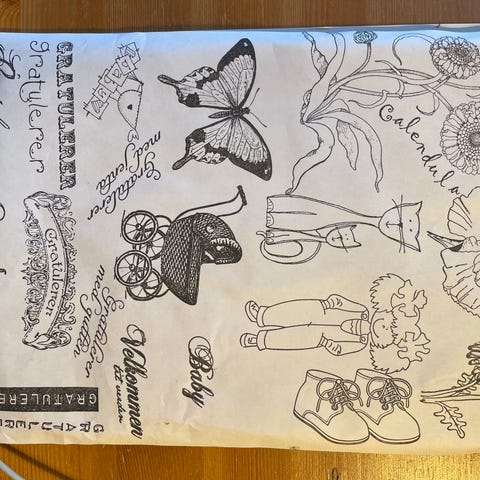 Calendula
Baby
Velkommen
til verden
Gratulerer
med jenta
Gratulerer
med gutten
GRATULERER
gratulerer
Gratulerer
GRATULERE
GRATULERE